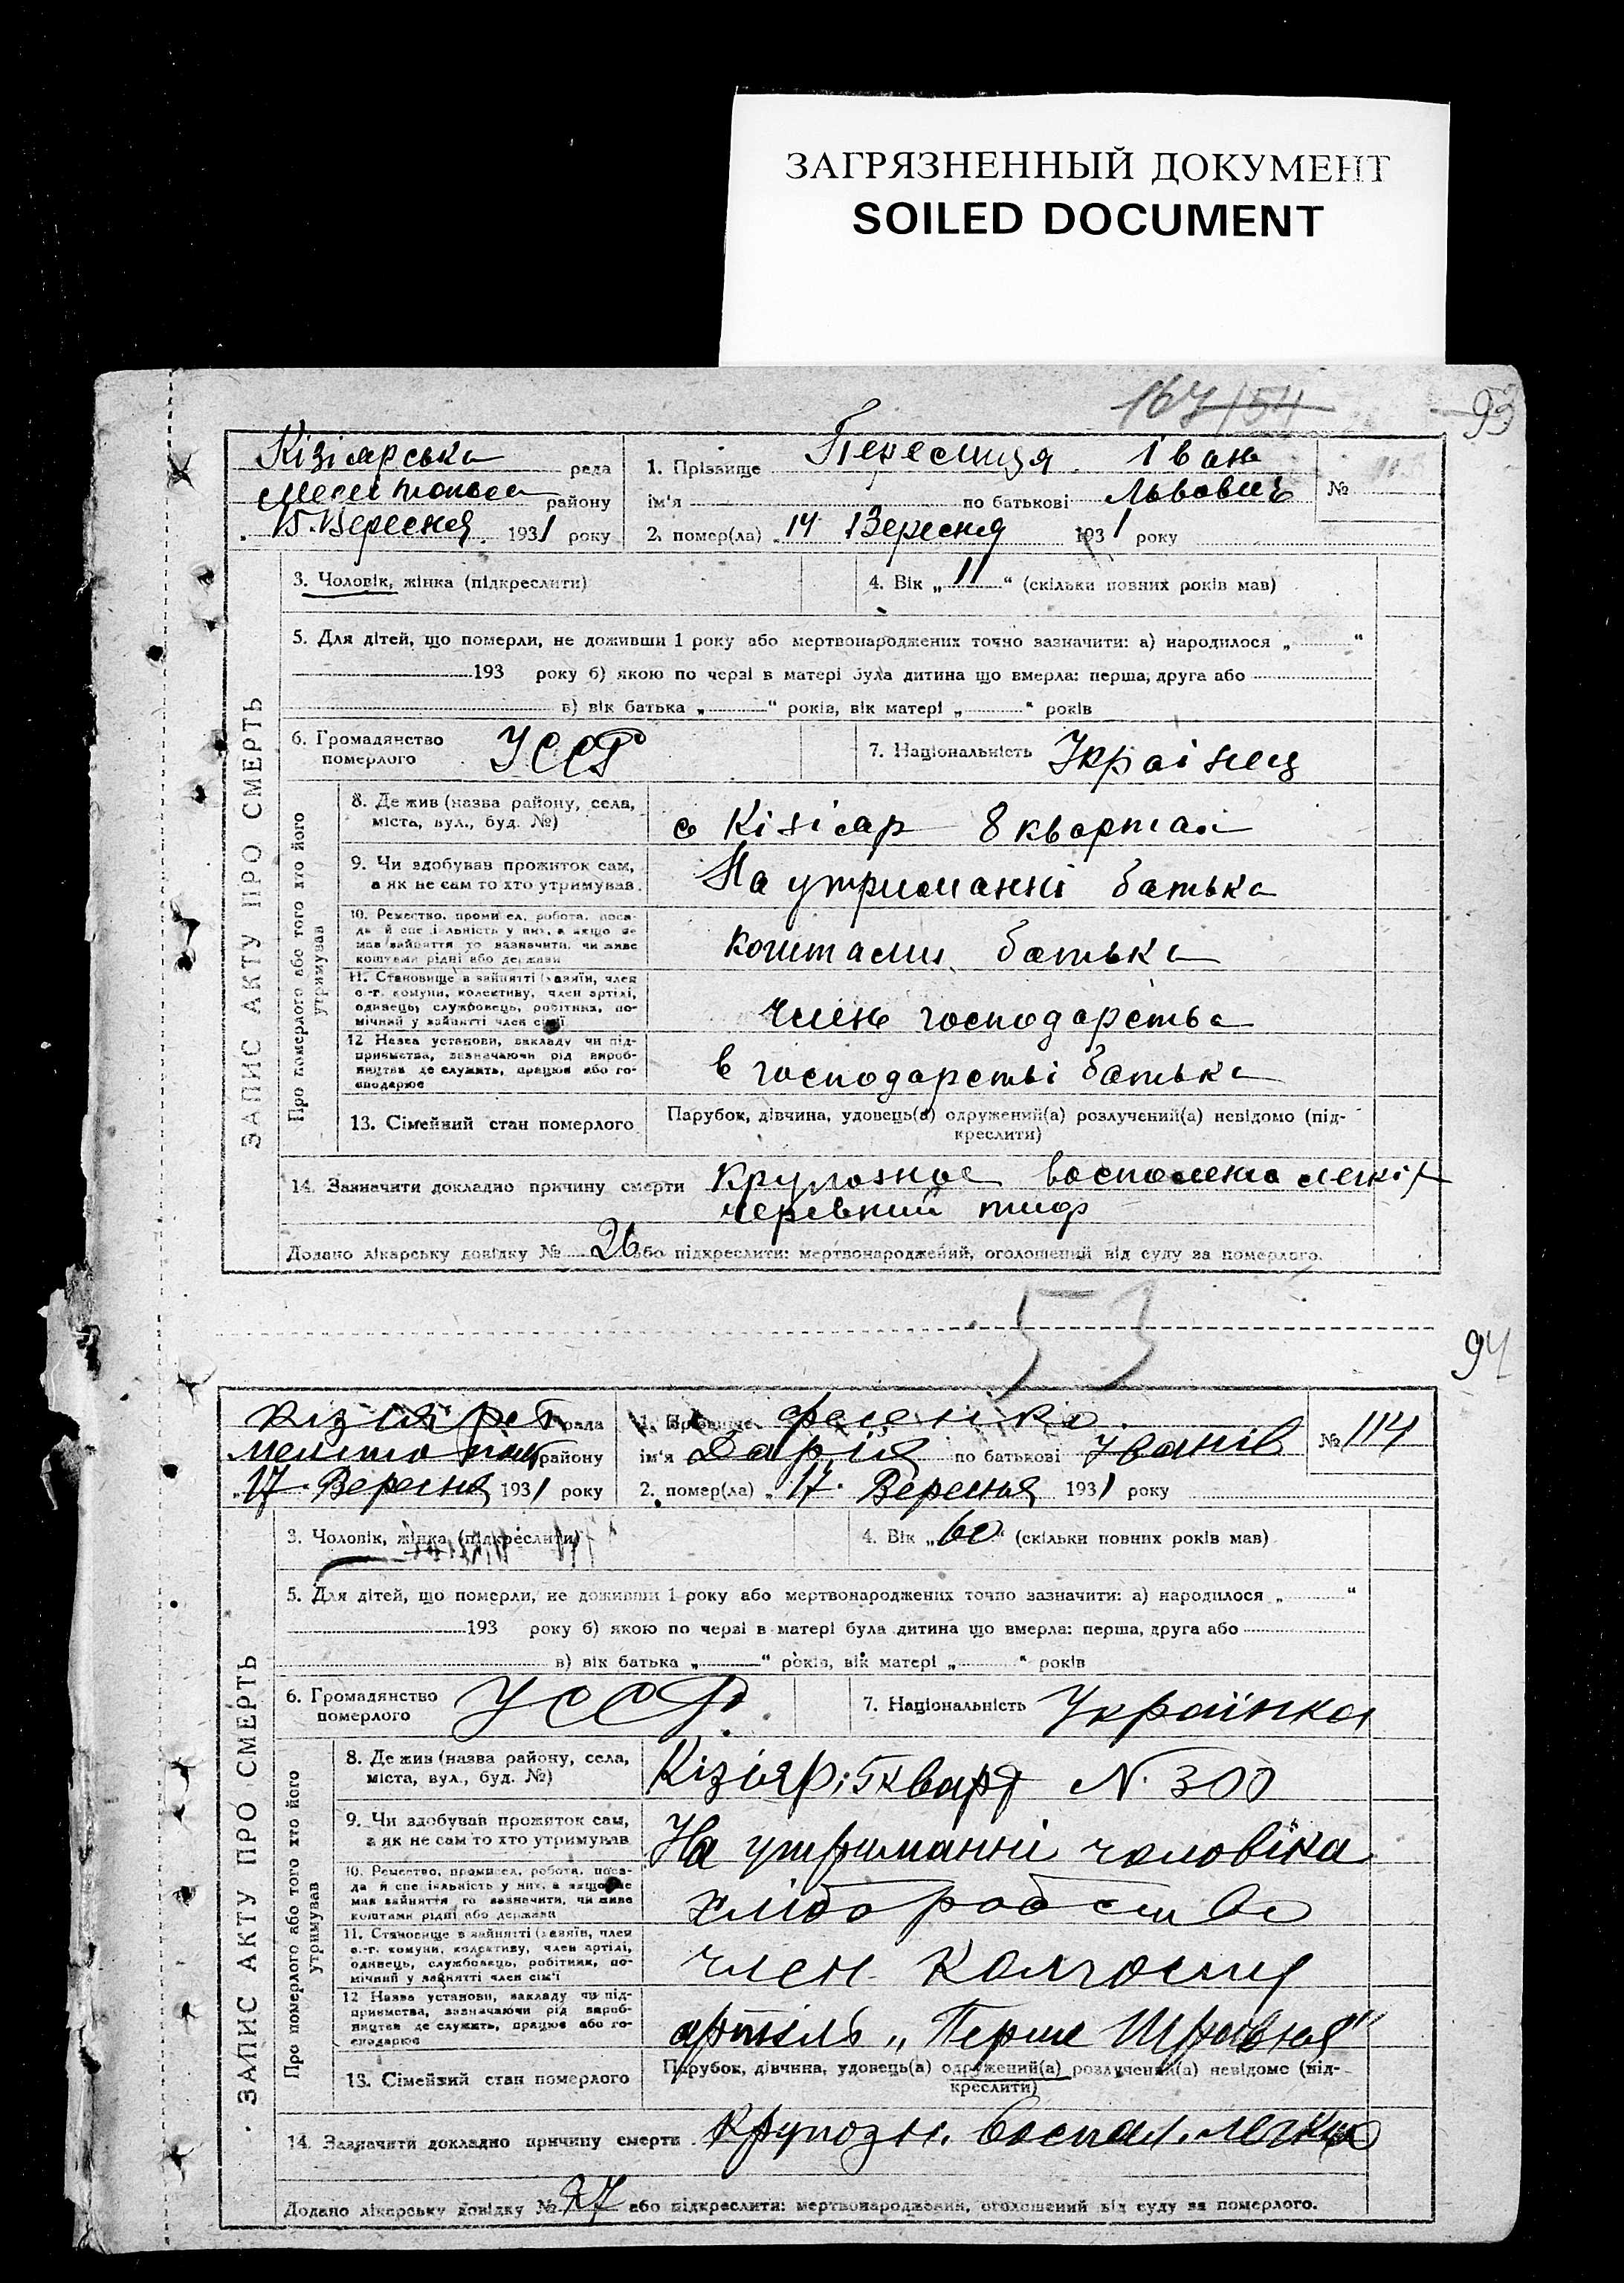 ЗАГРЯЗНЕННЫЙ ДОКУМЕНТ
SOILED DOCUMENT
93
Кізіярська рада
району
15 Вересня 1931 року
1. Прізвище Пересипця Іван
ім'я по батькові Львович
№
2. помер(ла) 14 Вересня 1931 року
ЗАПИС АКТУ ПРО СМЕРТЬ
3. Чоловік, жінка (підкреслити)
4. Вік „11“ (скільки повних років мав)
5. Для дітей, що померли, не доживши 1 року або мертвонароджених точно зазначити: а) народилося „ “
193 року б) якою по черзі в матері була дитина що вмерла: перша, друга або
в) вік батька „ “ років, вік матері „ “ років
6. Громадянство померлого УССР
7. Національність Украінец
Про померлого або того хто його утримував
8. Де жив (назва району, села, міста, вул., буд. №)
с Кізіяр 8 квартал
9. Чи здобував прожиток сам, а як не сам то хто утримував
На утриманні батька
10. Ремество, промисел, робота, посада й спеціяльність у них, а якщо не мав зайняття то зазначити, чи живе коштами рідні або держави
коштами батька
11. Становище в зайнятті (хазяїн, член с.-г. комуни, колективу, член артілі, одинець, службовець, робітник, помічний у зайнятті член сім'ї
член господарства
12 Назва установи, закладу чи підприємства, зазначаючи рід виробництва де служить, працює або господарює
в господарстві батька
13. Сімейний стан померлого
Парубок, дівчина, удовець(а) одружений(а) розлучений(а) невідомо (підкреслити)
14. Зазначити докладно причину смерти Крупозное воспаленя легкіх
черевний тиф
Додано лікарську довідку № 26 або підкреслити: мертвонароджений, оголошений від суду за померлого.
53
94
рада
району
17 Вересня 1931 року
1. Прізвище
ім'я Дарія по батькові Іванів
№ 114
2. помер(ла) 17 Вересня 1931 року
ЗАПИС АКТУ ПРО СМЕРТЬ
3. Чоловік, жінка (підкреслити)
4. Вік „60“ (скільки повних років мав)
5. Для дітей, що померли, не доживши 1 року або мертвонароджених точно зазначити: а) народилося „ “
193 року б) якою по черзі в матері була дитина що вмерла: перша, друга або
в) вік батька „ “ років, вік матері „ “ років
6. Громадянство померлого УССР.
7. Національність Українка
Про померлого або того хто його утримував
8. Де жив (назва району, села, міста, вул., буд. №)
Кізіяр; 5 кварт N. 300
9. Чи здобував прожиток сам, а як не сам то хто утримував
На утриманні чоловіка
10. Ремество, промисел, робота, посада й спеціяльність у них, а якщо не мав зайняття то зазначити, чи живе коштами рідні або держави
хліборобство
11. Становище в зайнятті (хазяїн, член с.-г. комуни, колективу, член артілі, одинець, службовець, робітник, помічний у зайнятті член сім'ї
член Колгоспу
12 Назва установи, закладу чи підприємства, зазначаючи рід виробництва де служить, працює або господарює
артіль „Перше Травня“
13. Сімейний стан померлого
Парубок, дівчина, удовець(а) одружений(а) розлучений(а) невідомо (підкреслити)
14. Зазначити докладно причину смерти Крупозн. воспал. легких
Додано лікарську довідку № 27 або підкреслити: мертвонароджений, оголошений від суду за померлого.